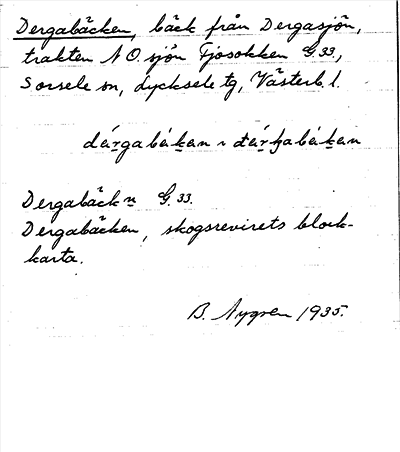 Dergabäcken, bäck från Dergasjön,
trakten N O. sjön Fjosokken G. 33,
Sorsele sn, Lycksele tg, Västerb. l.
Dergabäckn G. 33.
Dergabäcken, skogsrevirets block-
karta.
B. Nygren 1935.